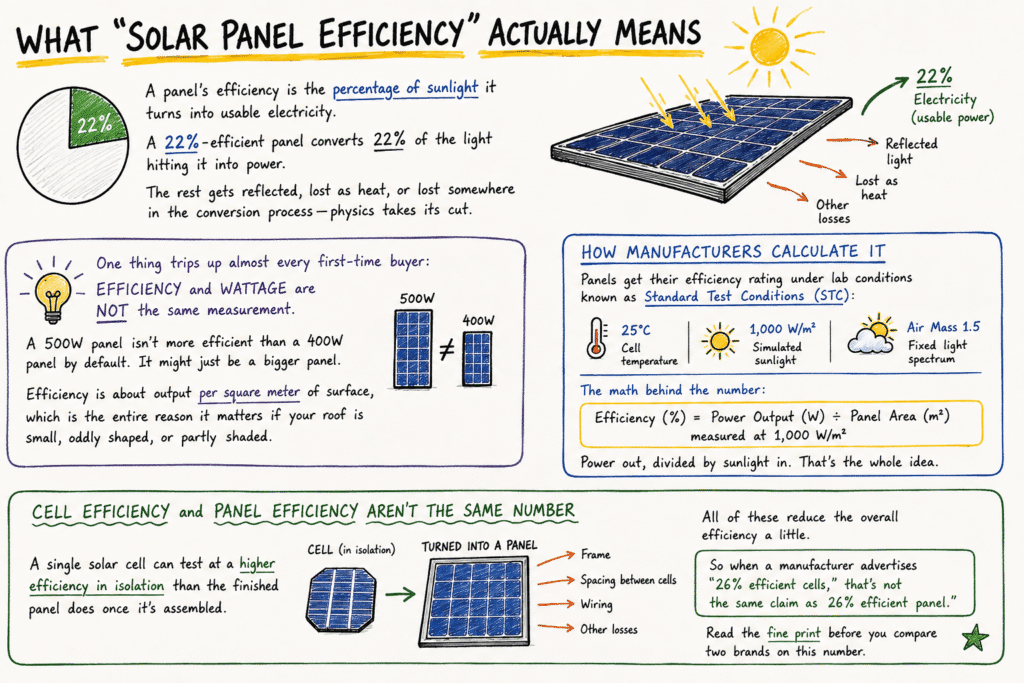 WHAT “SOLAR PANEL EFFICIENCY” ACTUALLY MEANS
22%
A panel's efficiency is the percentage of sunlight it
turns into usable electricity.
A 22%-efficient panel converts 22% of the light
hitting it into power.
The rest gets reflected, lost as heat, or lost somewhere
in the conversion process—physics takes its cut.
22%
Electricity
(usable power)
Reflected
light
Lost as
heat
Other
losses
One thing trips up almost every first-time buyer:
EFFICIENCY and WATTAGE are
NOT the same measurement.
A 500W panel isn't more efficient than a 400W
panel by default. It might just be a bigger panel.
Efficiency is about output per square meter of surface,
which is the entire reason it matters if your roof is
small, oddly shaped, or partly shaded.
500W
≠
400W
HOW MANUFACTURERS CALCULATE IT
Panels get their efficiency rating under lab conditions
known as Standard Test Conditions (STC):
25°C
Cell
temperature
1,000 W/m²
Simulated
sunlight
Air Mass 1.5
Fixed light
spectrum
The math behind the number:
Efficiency (%) = Power Output (W) ÷ Panel Area (m²)
measured at 1,000 W/m²
Power out, divided by sunlight in. That's the whole idea.
CELL EFFICIENCY and PANEL EFFICIENCY AREN'T THE SAME NUMBER
A single solar cell can test at a higher
efficiency in isolation than the finished
panel does once it's assembled.
CELL (in isolation)
TURNED INTO A PANEL
Frame
Spacing between cells
Wiring
Other losses
All of these reduce the overall
efficiency a little.
So when a manufacturer advertises
“26% efficient cells,” that's not
the same claim as 26% efficient panel.”
Read the fine print before you compare
two brands on this number.